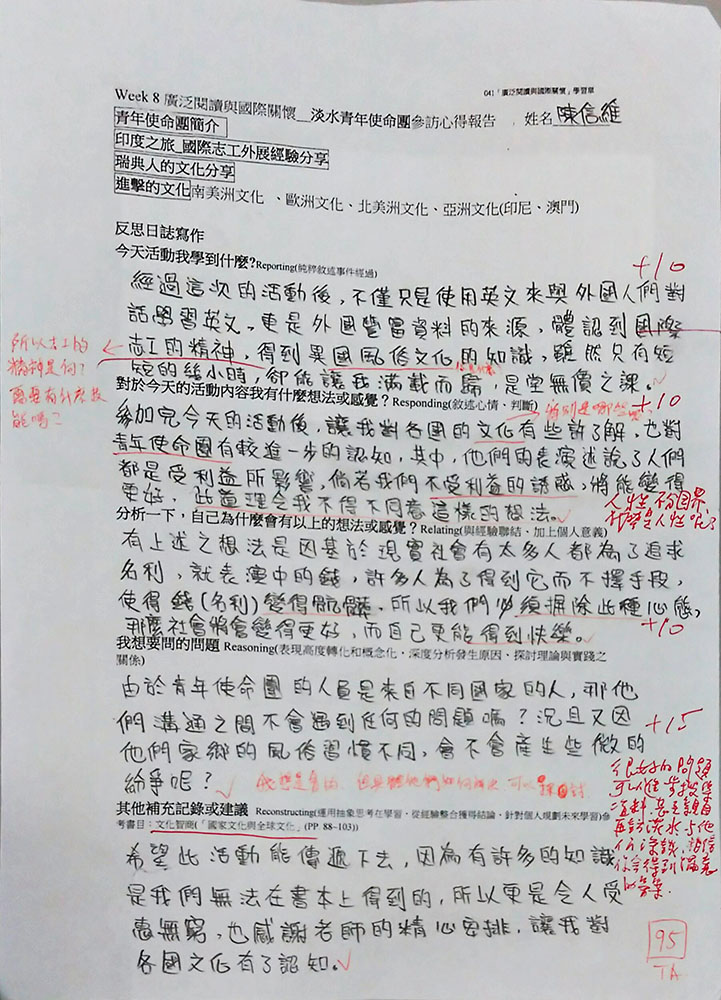 041「廣泛閱讀與國際關懷」學習單
Week 8 廣泛閱讀與國際關懷__淡水青年使命團參訪心得報告 , 姓名 陳信維
青年使命團簡介
印度之旅_國際志工外展經驗分享
瑞典人的文化分享
進擊的文化南美洲文化 、歐洲文化、北美洲文化、亞洲文化(印尼、澳門)
反思日誌寫作
今天活動我學到什麼?Reporting(純粹敘述事件經過)
+10
經過這次的活動後,不僅只是使用英文來與外國人們對
話學習英文,更是外國豐富資料的來源,體認到國際
志工的精神,得到異國風俗文化的知識,雖然只有短
短的幾小時,卻能讓我滿載而歸,是堂無價之課。
所以志工的
精神是何?
需要有什麼技
能嗎?
對於今天的活動內容我有什麼想法或感覺? Responding(敘述心情、判斷)
+10
參加完今天的活動後,讓我對各國的文化有些許了解,也對
青年使命團有較進一步的認知,其中,他們的表演述說了人們
都是受利益所影響,倘若我們不受利益的誘惑,將能變得
更好,此道理令我不得不同意這樣的想法。
分析一下,自己為什麼會有以上的想法或感覺? Relating(與經驗聯結、加上個人意義)
有上述之想法是因基於現實社會有太多人都為了追求
名利,就表演中的錢,許多人為了得到它而不擇手段,
使得錢(名利)變得骯髒,所以我們必須摒除此種心態,
那麼社會將會變得更好,而自己更能得到快樂。
+10
我想要問的問題 Reasoning(表現高度轉化和概念化,深度分析發生原因、探討理論與實踐之
關係)
由於青年使命團的人員是來自不同國家的人,那他
們溝通之間不會遇到任何的問題嗎?況且又因
他們家鄉的風俗習慣不同,會不會產生些微的
紛爭呢?
+15
很好的問題
其他補充記錄或建議 Reconstructing(運用抽象思考在學習,從經驗整合獲得結論,針對個人規劃未來學習)參
考書目:文化智商(「國家文化與全球文化」(PP 88~103))
希望此活動能傳遞下去,因為有許多的知識
是我們無法在書本上得到的,所以更是令人受
惠無窮,也感謝老師的精心安排,讓我對
各國文化有了認知。
95
TA